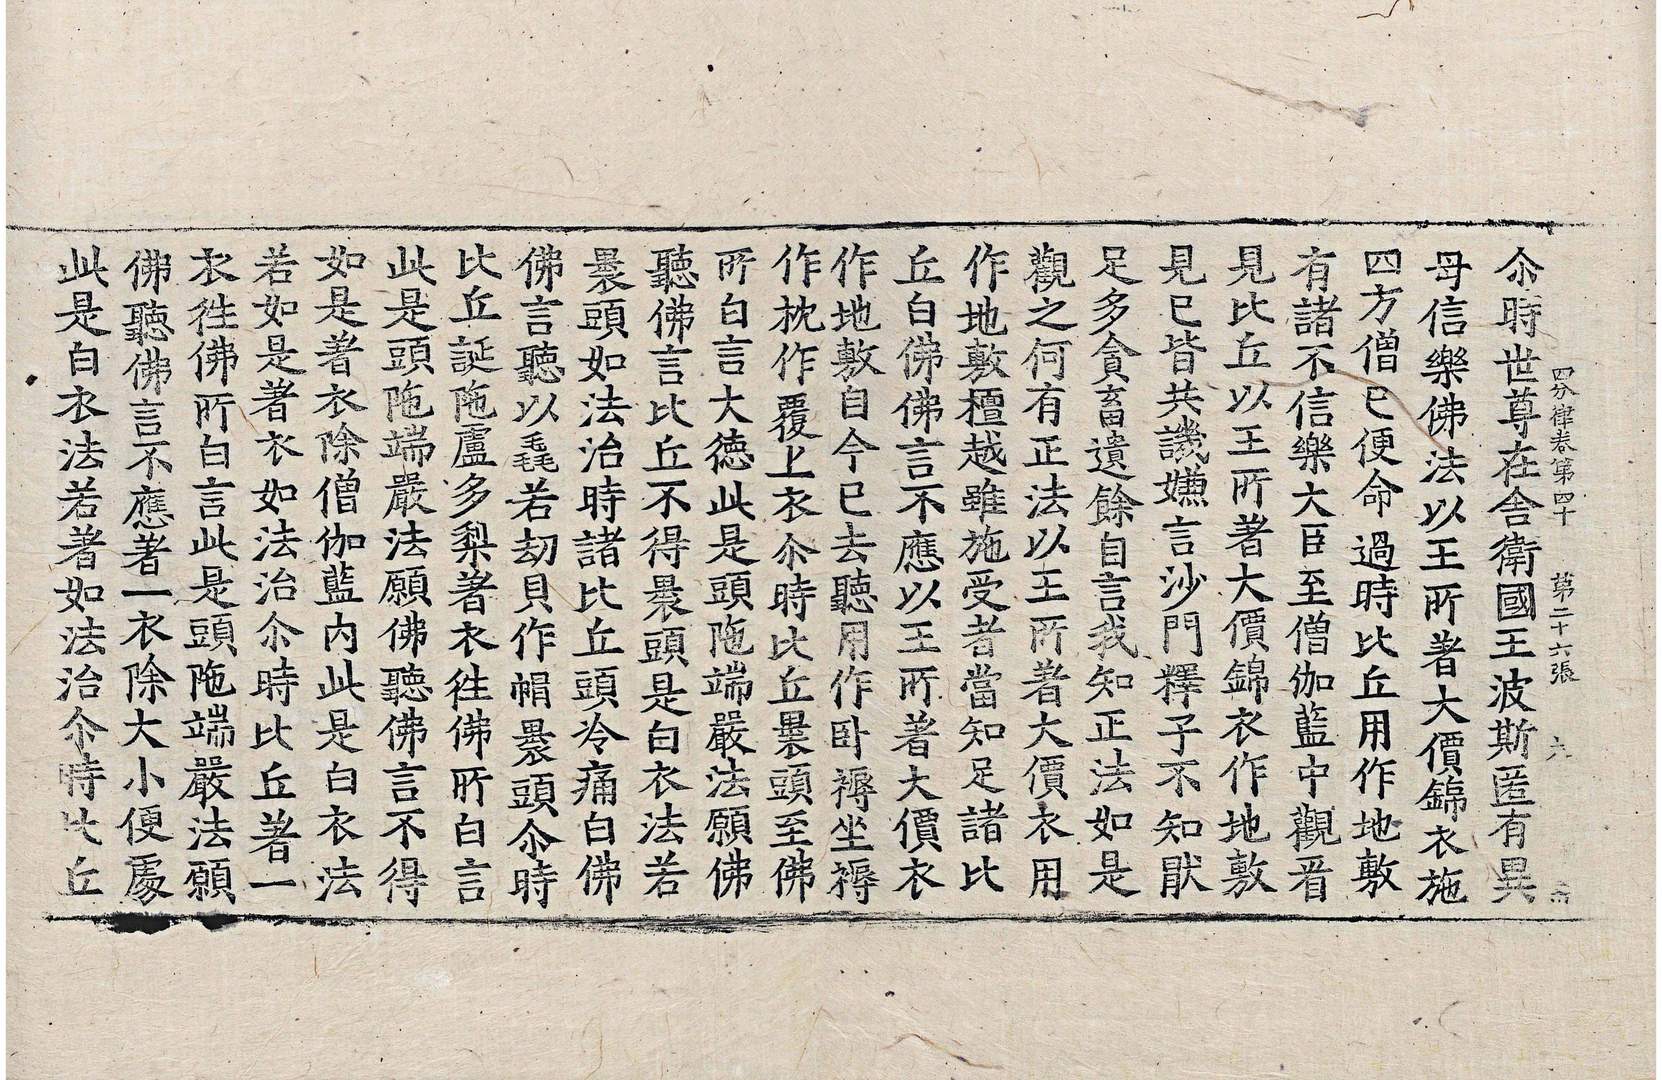 四分律卷第四十 第二十六張 六
尒時世尊在舍衛國王波斯匿有異
母信樂佛法以王所著大價錦衣施
四方僧已便命過時比丘用作地敷
有諸不信樂大臣至僧伽藍中觀看
見比丘以王所著大價錦衣作地敷
見已皆共譏嫌言沙門釋子不知猒
足多貪畜遺餘自言我知正法如是
觀之何有正法以王所著大價衣用
作地敷檀越雖施受者當知足諸比
丘白佛佛言不應以王所著大價衣
作地敷自今已去聽用作卧褥坐褥
作枕作覆上衣尒時比丘褁頭至佛
所白言大德此是頭陁端嚴法願佛
聽佛言比丘不得褁頭是白衣法若
褁頭如法治時諸比丘頭冷痛白佛
佛言聽以毳若劫貝作帽褁頭尒時
比丘誕陁盧多梨著衣徃佛所白言
此是頭陁端嚴法願佛聽佛言不得
如是著衣除僧伽藍内此是白衣法
若如是著衣如法治尒時比丘著一
衣徃佛所白言此是頭陁端嚴法願
佛聽佛言不應著一衣除大小便處
此是白衣法若著如法治尒時比丘